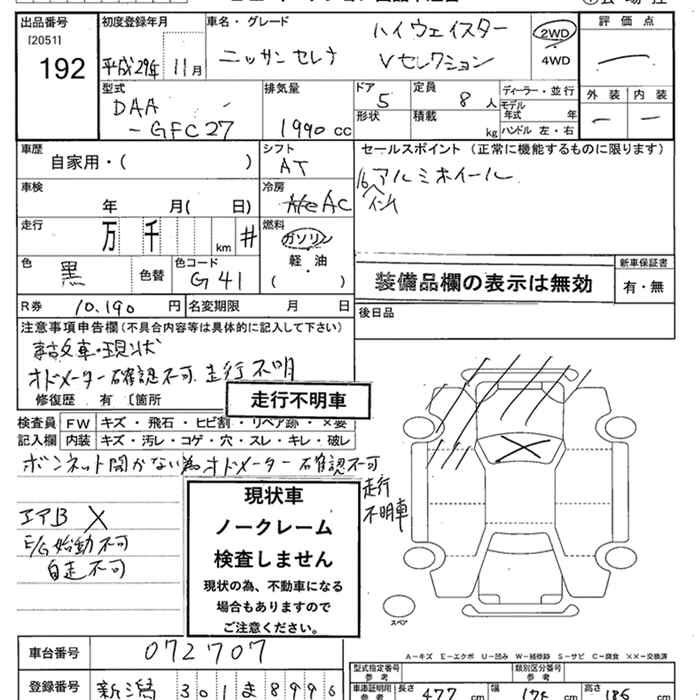 出品番号 初度登録年月 車名・グレード ハイウェイスター 2WD 評価点
[2051] ニッサン セレナ Vセレクション 4WD
192 平成29年 11月
型式 排気量 ドア 定員 ディーラー・並行 外装 内装
DAA 5 8人 モデル年式 年
-GFC27 1990cc 形状 積載 kg ハンドル 左・右
車歴 シフト セールスポイント (正常に機能するものに限ります)
自家用・( ) AT 16インチ アルミホイール
車検 冷房
年 月( 日) AAC
走行 燃料
万 千 km # ガソリン
軽・油
( )
色 色コード 新車保証書
黒 色替 G41 装備品欄の表示は無効 有・無
R券 10,190円 名変期限 月 日 後日品
注意事項申告欄(不具合内容等は具体的に記入して下さい)
事故車・現状
オドメーター確認不可 走行不明
修復歴 有 〔箇所 走行不明車
検査員 FW キズ・飛石・ヒビ割・リペア跡・×要
記入欄 内装 キズ・汚レ・コゲ・穴・スレ・キレ・破レ
ボンネット開かない為オドメーター確認不可
走行
不明車
エアB X
E/G始動不可
自走不可
現状車
ノークレーム
検査しません
現状の為、不動車になる
場合もありますので
ご注意ください。
スペア
A-キズ E-エクボ U-凹み W-補修跡 S-サビ C-腐食 ××-交換済
車台番号 072707
型式指定番号 参考 類別区分番号 参考
登録番号 新潟 301 ま 8996
車庫証明用 参考 長さ 477 cm 幅 cm 高さ cm